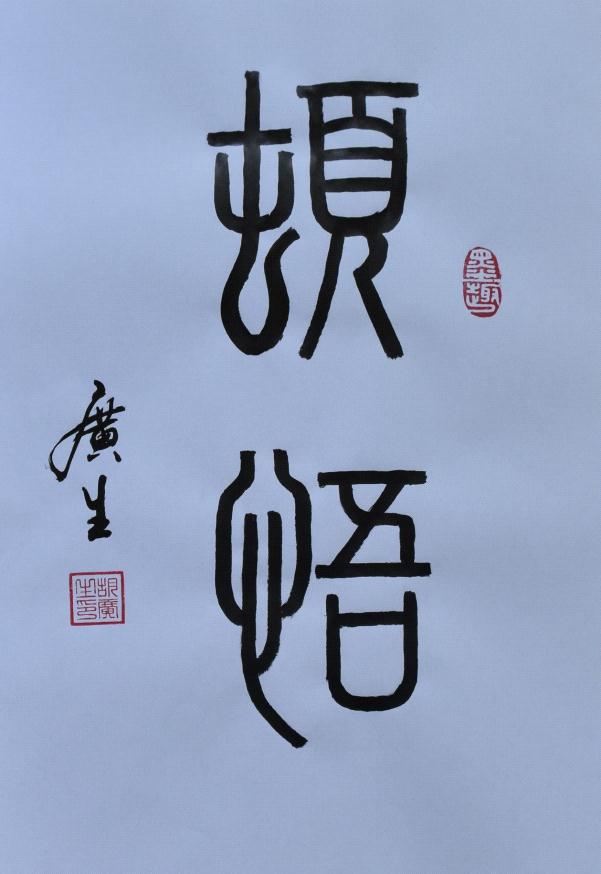 頓
悟
廣生
墨趣
胡廣生印